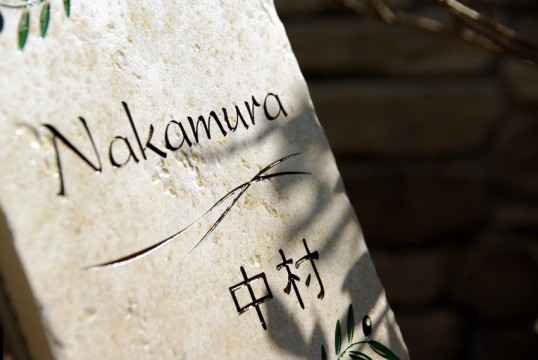 Nakamura
中村